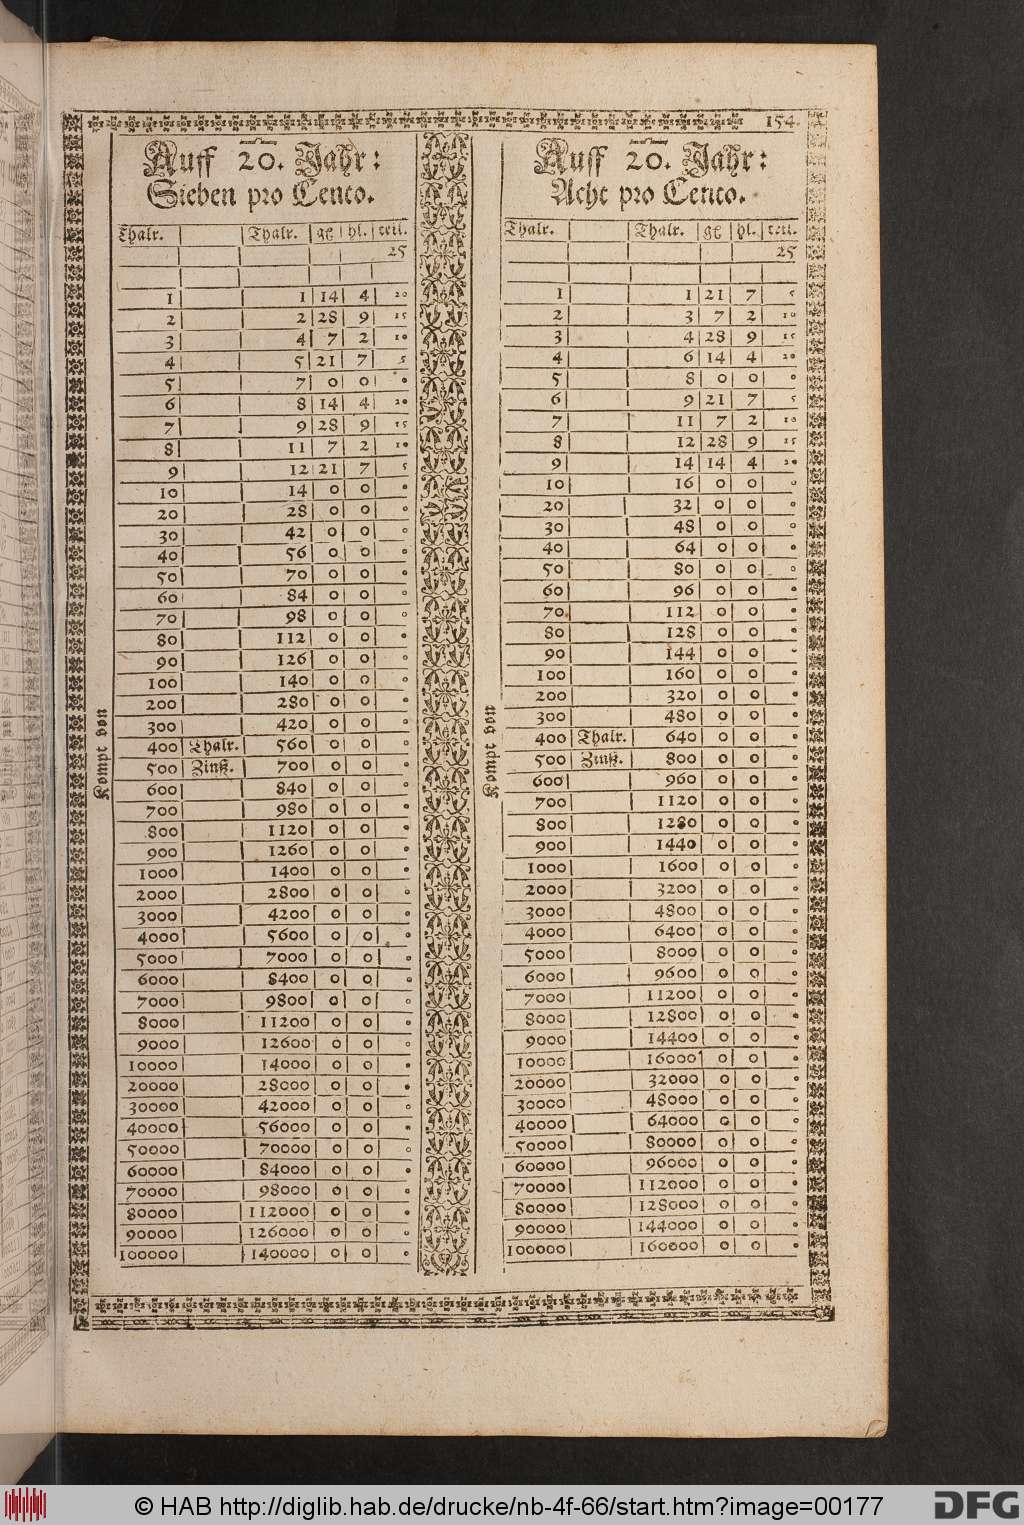 154.
Auff 20. Jahr:
Sieben pro Cento.
Thalr. Thalr. gg hl. teil.
25
1 1 14 4 20
2 2 28 9 15
3 4 7 2 10
4 5 21 7 5
5 7 0 0 0
6 8 14 4 20
7 9 28 9 15
8 11 7 2 10
9 12 21 7 5
10 14 0 0 0
20 28 0 0 0
30 42 0 0 0
40 56 0 0 0
50 70 0 0 0
60 84 0 0 0
70 98 0 0 0
80 112 0 0 0
90 126 0 0 0
100 140 0 0 0
200 280 0 0 0
300 420 0 0 0
400 Thalr. 560 0 0 0
500 Zinß. 700 0 0 0
600 840 0 0 0
700 980 0 0 0
800 1120 0 0 0
900 1260 0 0 0
1000 1400 0 0 0
2000 2800 0 0 0
3000 4200 0 0 0
4000 5600 0 0 0
5000 7000 0 0 0
6000 8400 0 0 0
7000 9800 0 0 0
8000 11200 0 0 0
9000 12600 0 0 0
10000 14000 0 0 0
20000 28000 0 0 0
30000 42000 0 0 0
40000 56000 0 0 0
50000 70000 0 0 0
60000 84000 0 0 0
70000 98000 0 0 0
80000 112000 0 0 0
90000 126000 0 0 0
100000 140000 0 0 0
Kompt von
Auff 20. Jahr:
Acht pro Cento.
Thalr. Thalr. gg hl. teil.
25
1 1 21 7 5
2 3 7 2 10
3 4 28 9 15
4 6 14 4 20
5 8 0 0 0
6 9 21 7 5
7 11 7 2 10
8 12 28 9 15
9 14 14 4 20
10 16 0 0 0
20 32 0 0 0
30 48 0 0 0
40 64 0 0 0
50 80 0 0 0
60 96 0 0 0
70 112 0 0 0
80 128 0 0 0
90 144 0 0 0
100 160 0 0 0
200 320 0 0 0
300 480 0 0 0
400 Thalr. 640 0 0 0
500 Zinß. 800 0 0 0
600 960 0 0 0
700 1120 0 0 0
800 1280 0 0 0
900 1440 0 0 0
1000 1600 0 0 0
2000 3200 0 0 0
3000 4800 0 0 0
4000 6400 0 0 0
5000 8000 0 0 0
6000 9600 0 0 0
7000 11200 0 0 0
8000 12800 0 0 0
9000 14400 0 0 0
10000 16000 0 0 0
20000 32000 0 0 0
30000 48000 0 0 0
40000 64000 0 0 0
50000 80000 0 0 0
60000 96000 0 0 0
70000 112000 0 0 0
80000 128000 0 0 0
90000 144000 0 0 0
100000 160000 0 0 0
Kompt von
© HAB http://diglib.hab.de/drucke/nb-4f-66/start.htm?image=00177
DFG